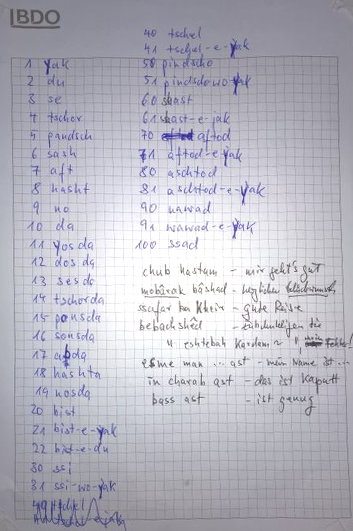 IBDO
1 yak
2 du
3 se
4 tschor
5 pandsch
6 sash
7 aft
8 hasht
9 no
10 da
11 yosda
12 dosda
13 sesda
14 tschorda
15 ponsda
16 sonsda
17 abda
18 hashta
19 nosda
20 bist
21 bist-e-yak
22 bist-e-du
30 ssi
31 ssi-wo-yak
40 tschel
41 tschel-e-yak
50 pindscho
51 pindschowo-yak
60 shast
61 shast-e-jak
70 aftod
71 aftod-e-yak
80 aschtod
81 aschtod-e-yak
90 nawad
91 nawad-e-yak
100 ssad
chub hastam - mir geht's gut
mobârak bâshad - herzlichen
ssafar ba kheir - gute Reise
bebachshêd - entschuldigen Sie
" eshtebah kardam ~ " Fehler!
esme man ... ast - mein Name ist ...
in charab ast - das ist kaputt
bass ast - ist genug